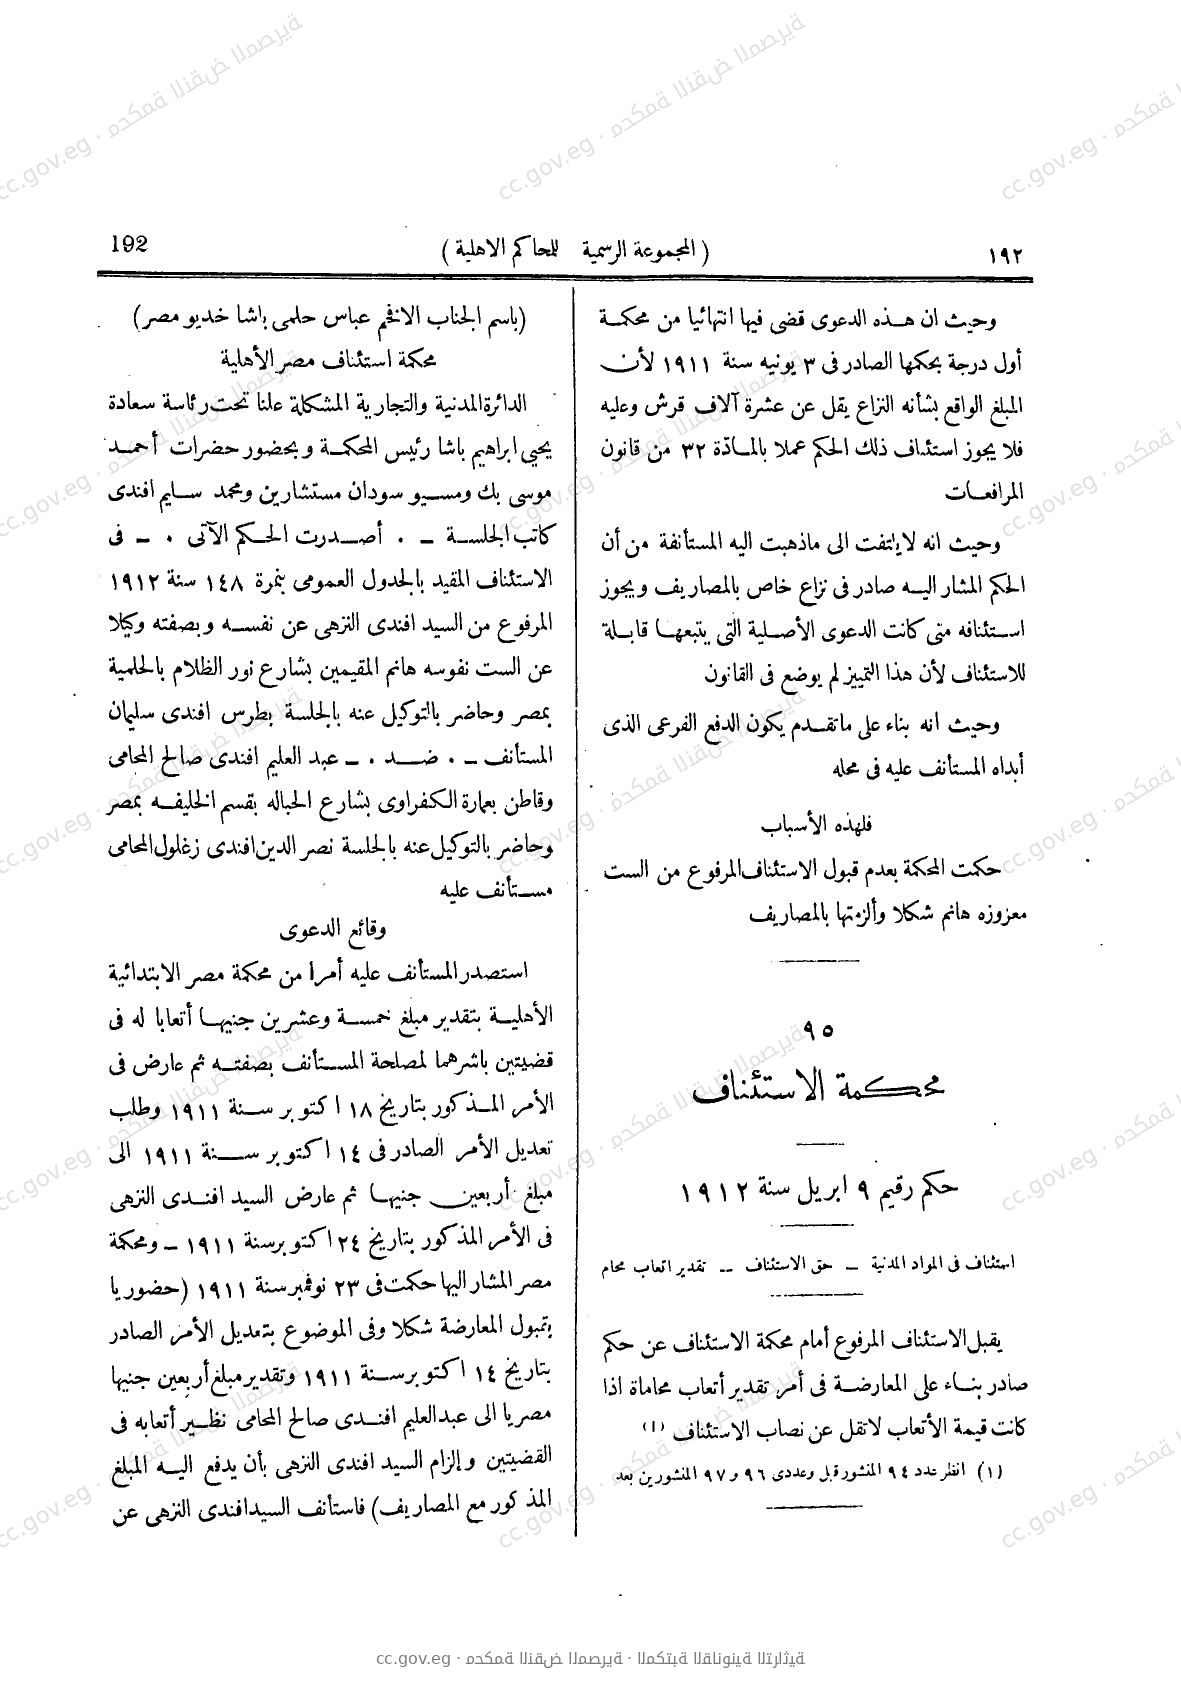 ١٩٢
( المجموعة الرسمية للمحاكم الاهلية )
192
وحيث ان هذه الدعوى قضى فيها انتهائيا من محكمة
أول درجة بحكمها الصادر فى ٣ يونيه سنة ١٩١١ لأن
المبلغ الواقع بشأنه النزاع يقل عن عشرة آلاف قرش وعليه
فلا يجوز استئناف ذلك الحكم عملا بالمادّة ٣٢ من قانون
المرافعات
وحيث انه لا يلتفت الى ماذهبت اليه المستأنفة من أن
الحكم المشار اليه صادر فى نزاع خاص بالمصاريف ويجوز
استئنافه متى كانت الدعوى الأصلية التى يتبعها قابلة
للاستئناف لأن هذا التمييز لم يوضع فى القانون
وحيث انه بناء على ماتقدم يكون الدفع الفرعى الذى
أبداه المستأنف عليه فى محله
فلهذه الأسباب
حكمت المحكمة بعدم قبول الاستئناف المرفوع من الست
معزوزه هانم شكلا وألزمتها بالمصاريف
٩٥
محكمة الاستئناف
حكم رقيم ٩ ابريل سنة ١٩١٢
استئناف فى المواد المدنية – حق الاستئناف – تقدير اتعاب محام
يقبل الاستئناف المرفوع أمام محكمة الاستئناف عن حكم
صادر بناء على المعارضة فى أمر تقدير أتعاب محاماة اذا
كانت قيمة الأتعاب لاتقل عن نصاب الاستئناف (١)
(١) انظر عدد ٩٤ المنشور قبل وعددى ٩٦ و ٩٧ المنشورين بعد
(باسم الجناب الافخم عباس حلمى باشا خديو مصر)
محكمة استئناف مصر الأهلية
الدائرة المدنية والتجارية المشكلة علنا تحت رئاسة سعادة
يحيى ابراهيم باشا رئيس المحكمة وبحضور حضرات أحمد
موسى بك ومسيو سودان مستشارين ومحمد سليم افندى
كاتب الجلسة – . أصدرت الحكم الآتى . – فى
الاستئناف المقيد بالجدول العمومى بنمرة ١٤٨ سنة ١٩١٢
المرفوع من السيد افندى النزهى عن نفسه وبصفته وكيلا
عن الست نفوسه هانم المقيمين بشارع نور الظلام بالحلمية
بمصر وحاضر بالتوكيل عنه بالجلسة بطرس افندى سليمان
المستأنف – . ضد . – عبد العليم افندى صالح المحامى
وقاطن بعمارة الكفراوى بشارع الحباله بقسم الخليفه بمصر
وحاضر بالتوكيل عنه بالجلسة نصر الدين افندى زغلول المحامى
مستأنف عليه
وقائع الدعوى
استصدر المستأنف عليه أمرا من محكمة مصر الابتدائية
الأهلية بتقدير مبلغ خمسة وعشرين جنيها أتعابا له فى
قضيتين باشرهما لمصلحة المستأنف بصفته ثم عارض فى
الأمر المذكور بتاريخ ١٨ اكتوبر سنة ١٩١١ وطلب
تعديل الأمر الصادر فى ١٤ اكتوبر سنة ١٩١١ الى
مبلغ أربعين جنيها ثم عارض السيد افندى النزهى
فى الأمر المذكور بتاريخ ٢٤ اكتوبر سنة ١٩١١ – ومحكمة
مصر المشار اليها حكمت فى ٢٣ نوفمبر سنة ١٩١١ (حضوريا
بقبول المعارضة شكلا وفى الموضوع بتعديل الأمر الصادر
بتاريخ ١٤ اكتوبر سنة ١٩١١ وتقدير مبلغ أربعين جنيها
مصريا الى عبد العليم افندى صالح المحامى نظير أتعابه فى
القضيتين وإلزام السيد افندى النزهى بأن يدفع اليه المبلغ
المذكور مع المصاريف) فاستأنف السيد افندى النزهى عن
cc.gov.eg · محكمة النقض المصرية · المكتبة القانونية التراثية